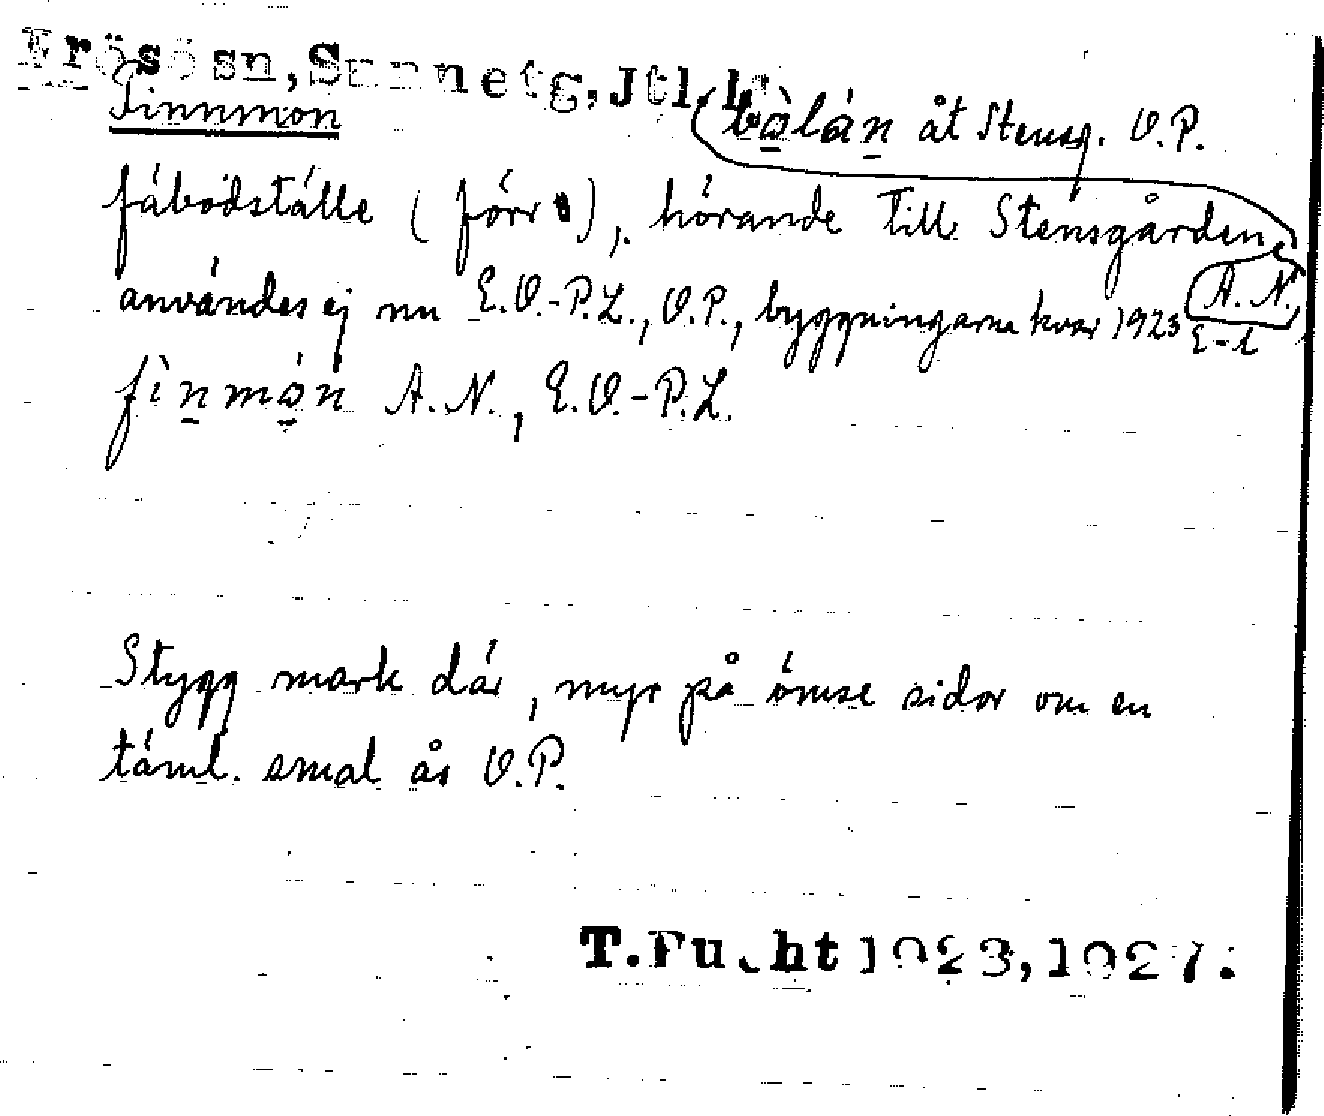 Frösö sn, Sunne tg, Jtl. l.
Finnmon
(bo̱lán̠ åt Stensg. O.P.
fäbodställe (förr), hörande till Stensgården,
användes ej nu E.O.-P.L., O.P., byggningarna kvar 1923 A.N.,
E-l
fìn̠mo̱n A.N., E.O.-P.L.
Stygg mark där, myr på ömse sidor om en
täml. smal ås O.P.
T. Fucht 1923, 1927.